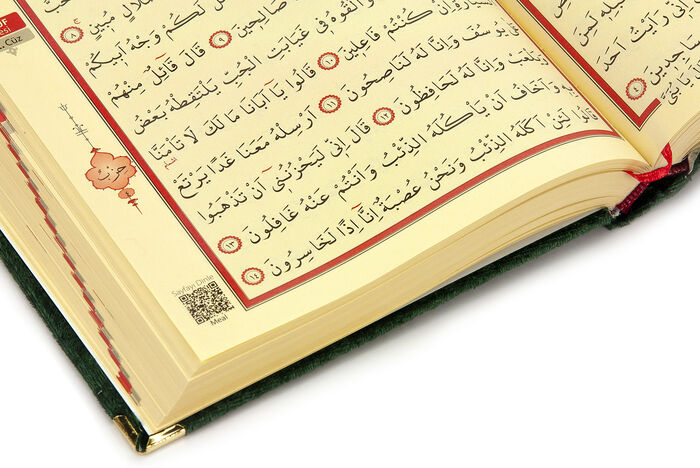 ضَلَالٍ مُبٖينٍ ٨
لَكُمْ وَجْهُ اَبٖيكُمْ
صَالِحٖينَ قَالَ قَائِلٌ مِنْهُمْ
اَلْقُوهُ فٖى غَيَابَتِ الْجُبِّ يَلْتَقِطْهُ بَعْضُ
اِنْ كُنْتُمْ فَاعِلٖينَ ١٠ قَالُوا يَٓا اَبَانَا مَا لَكَ لَا تَاْمَنَّا
يُوسُفَ وَاِنَّا لَهُ لَنَاصِحُونَ ١١ اَرْسِلْهُ مَعَنَا غَدًا يَرْتَعْ
وَيَلْعَبْ وَاِنَّا لَهُ لَحَافِظُونَ ١٢ قَالَ اِنّٖى لَيَحْزُنُنٖٓى اَنْ تَذْهَبُوا
بِهٖ وَاَخَافُ اَنْ يَاْكُلَهُ الذِّئْبُ وَاَنْتُمْ عَنْهُ غَافِلُونَ ١٣
قَالُوا لَئِنْ اَكَلَهُ الذِّئْبُ وَنَحْنُ عُصْبَةٌ اِنَّٓا اِذًا لَخَاسِرُونَ ١٤
Cüz
حزب
Sayfayı Dinle
Meal
رَاَيْتُ اَحَدَ
٤